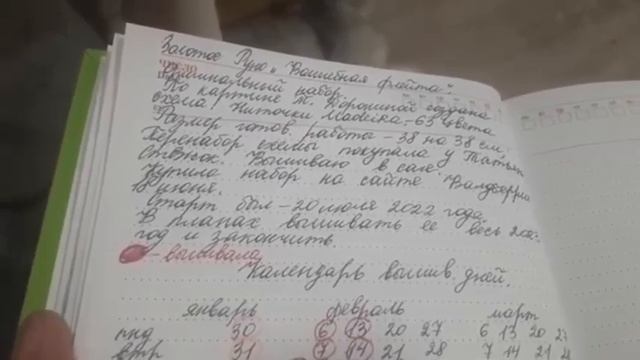 Золотое Руно „Волшебная флейта".
число
Оригинальный набор.
По картине Т. Дорониной создана
схема. Ниточки Madeira - 63 цвета
Размер готов. работа - 38 на 38 см.
Перенабор схемы покупала у Татьян
Стёжок. Вышиваю в сале.
Купила набор на сайте Валдберриз
В июня.
Старт был - 20 июля 2022 года.
В планах вышивать её весь 202
год и закончить.
- вышивала
Календарь вышив. дней.
январь февраль март
пнд 30 6 13 20 27 6 13 20 27
втр 31 7 14 21 28 7 14 21